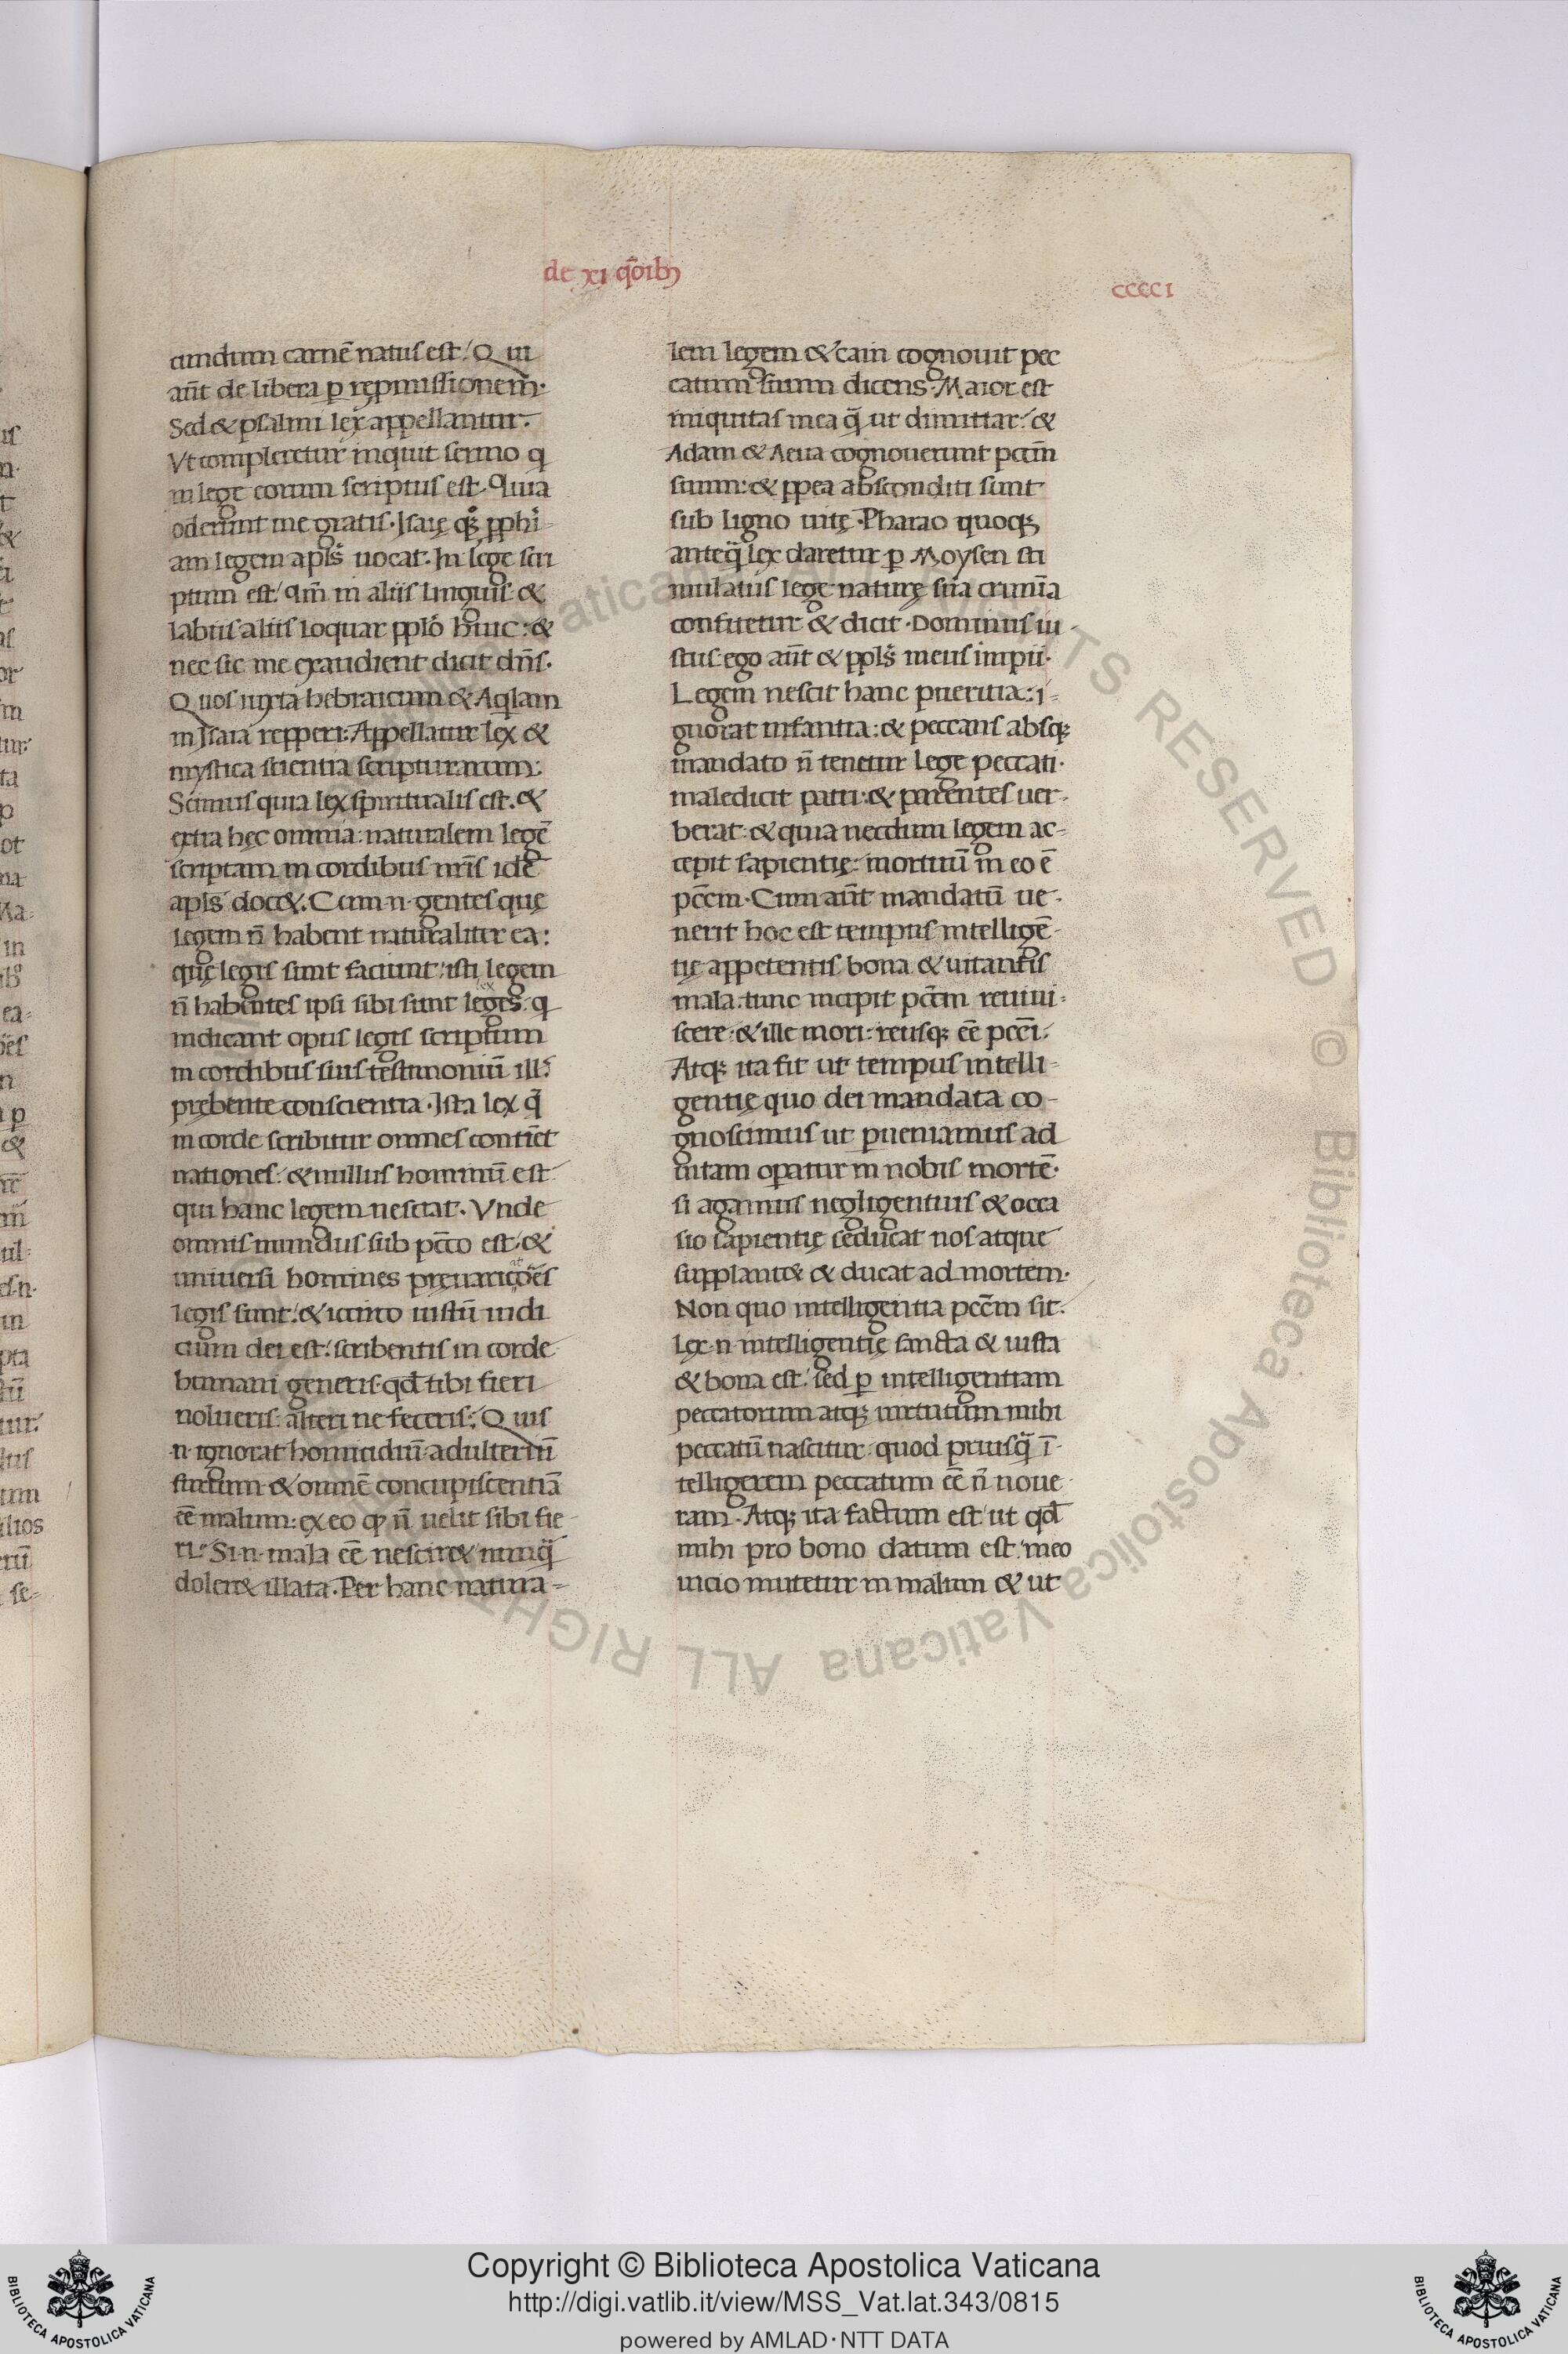 de xi q̄oibꝫ
cccci
cundum carnē natus est. Qui
aūt de libera ꝑ rępmissionem·
Sed & psalmi lex appellantur.
Vt compleretur inquit sermo q
in lege eorum scriptus est. Quia
oderunt me gratis. Isaię qꝫ ꝓphi-
am legem apl's uocat. In lege scri
ptum est. qm̄ in aliis linguis: &
labiis aliis loquar pplo huic: &
nec sic me exaudient dicit dn̄s.
Quos iuxta hebraicum & Aqlam
in Isaia repperi: Appellatur lex &
mystica scientia scripturarum:
Scimus quia lex spiritualis est. &
extra hęc omnia: naturalem legē
scriptam in cordibus nr̄is idē
apl's doc&. Cum .n. gentes quę
legem n̄ habent naturaliter ea:
quę legis sunt faciunt: isti legem
n̄ habentes ipsi sibi sunt leges. q
lex
indicant opus legis scriptum
in cordibus suis testimoniū ill'
prębente conscientia. Ista lex q̄
in corde scribitur omnes contin&
nationes: & nullus hominū est
qui hanc legem nesciat. Vnde
omnis mundus sub pc̄co est. &
uniuersi homines pręuaricōes
at
legis sunt: & iccirco iustū iudi
cium dei est: scribentis in corde
humani generis. qd̄ tibi fieri
nolueris: alteri ne feceris: Quis
.n. ignorat homicidiū. adulteriū
furtum & omnē concupiscentiā
eē malum: ex eo ꝙ n̄ uelit sibi fie
ri. Si .n. mala eē nescir& nunq̄
doler& illata. Per hanc natura-
lem legem & cain cognouit pec
catum suum dicens. Maior est
iniquitas mea q̄ ut dimittar: &
Adam & Aeua cognouerunt pctm̄
suum: & ppea absconditi sunt
sub ligno uitę. Pharao quoqꝫ
anteq̄ lex daretur ꝑ Moysen sti
mulatus lege naturę sua crimīa
confitetur & dicit. Dominus iu-
stus. ego aūt & ppl's meus impii.
Legem nescit hanc pueritia: i-
gnorat infantia: & peccans absqꝫ
mandato n̄ tenetur lege peccati.
maledicit patri: & parentes uer-
berat: & quia necdum legem ac-
cepit sapientię: mortuū in eo ē
pc̄cm. Cum aūt mandatū ue-
nerit hoc est tempus intelligē-
tię appetentis bona & uitantis
mala. tunc incipit pc̄cm reuiui-
scere. & ille mori: reusqꝫ eē pc̄ci.
Atqꝫ ita fit ut tempus intelli-
gentię quo dei mandata co-
gnoscimus ut ꝑueniamus ad
uitam opatur in nobis mortē.
si agamus negligentius & occa
sio sapientię seducat nos atque
supplant& & ducat ad mortem.
Non quo intelligentia pc̄cm sit.
Lex .n. intelligentię sancta & iusta
& bona est. sed ꝑ intelligentiam
peccatorum atqꝫ uirtutum mihi
peccatū nascitur: quod priusq̄ ī-
telligerem peccatum eē n̄ noue
ram. Atqꝫ ita factum est ut qd̄
mihi pro bono datum est. meo
uicio mutetur in malum & ut
Copyright © Biblioteca Apostolica Vaticana
http://digi.vatlib.it/view/MSS_Vat.lat.343/0815
powered by AMLAD·NTT DATA
BIBLIOTECA APOSTOLICA VATICANA
BIBLIOTECA APOSTOLICA VATICANA
ALL RIGHTS RESERVED © Biblioteca Apostolica Vaticana